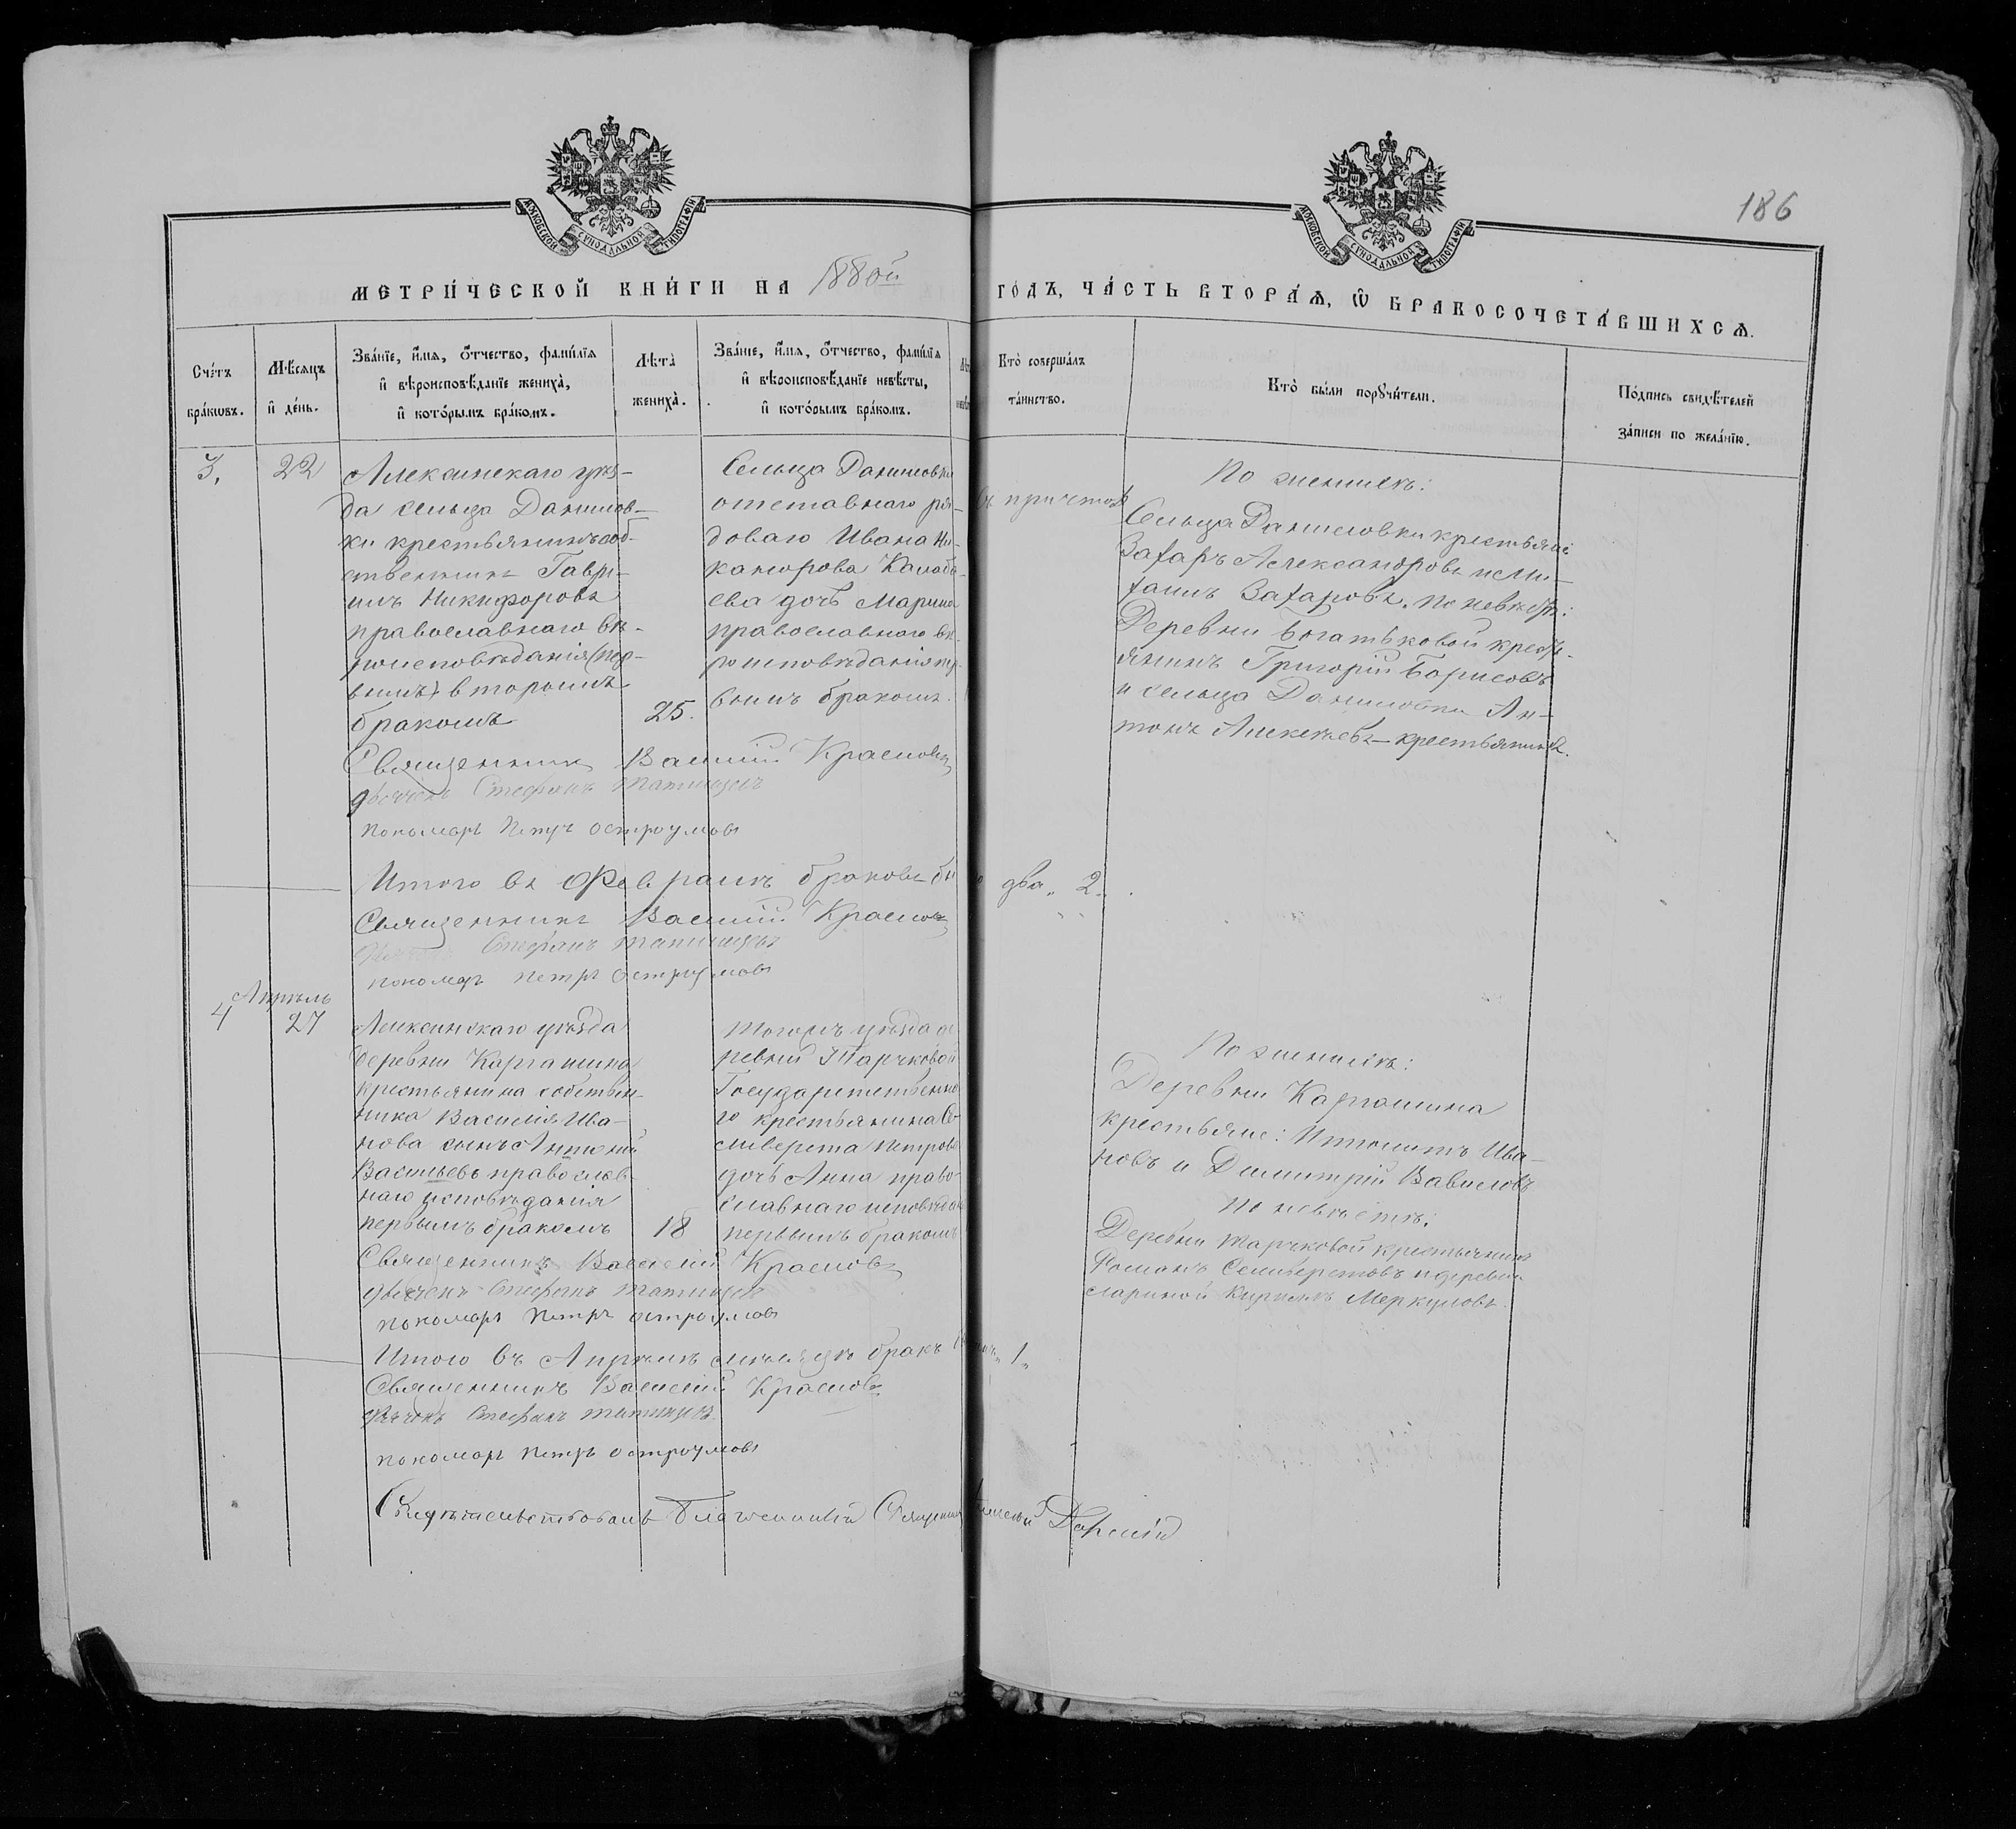 МОСКОВСКОЙ СУНОДАЛЬНОЙ ТИПОГРАФІИ
МОСКОВСКОЙ СУНОДАЛЬНОЙ ТИПОГРАФІИ
186
МЕТРИ́ЧЕСКОЙ КНИ́ГИ НА 1880ой ГО́ДЪ, ЧА́СТЬ ВТОРА́Ѧ, Ѿ БРАКОСОЧЕТА́ВШИХСѦ.
Сче́тъ
бра́кѡвъ.
Мѣ́сѧцъ
и҆ де́нь.
Зва́нїе, и҆́мѧ, ѻ҆́тчество, фами́лїѧ
и҆ вѣроисповѣ́данїе жениха̀,
и҆ кото́рымъ бра́комъ.
Лѣта̀
жениха̀.
Зва́нїе, и҆́мѧ, ѻ҆́тчество, фами́лїѧ
и҆ вѣроисповѣ́данїе невѣ́сты,
и҆ кото́рымъ бра́комъ.
Кто̀ соверша́лъ
та́инство.
Кто̀ бы́ли порꙋчи́тели.
По́дпись свидѣ́телей
за́писи по жела́нїю.
3.
22
Алексинскаго уѣз-
да сельца Данилов-
ки крестьянинъ соб-
ственникъ Гаври-
илъ Никифоровъ
православнаго вѣ-
роисповѣданія (пер-
вымъ) вторымъ
бракомъ
25.
Сельца Даниловки
отставнаго ря-
доваго Ивана Ни-
канорова
ева дочь Марина
православнаго вѣ-
роисповѣданія пер-
вымъ бракомъ.
съ причтомъ
По женихѣ:
Сельца Даниловки крестьяне
Захаръ Александровъ и Ми-
хаилъ Захаровъ. По невѣстѣ:
Деревни Богатьковой крест-
янинъ Григорій Борисовъ
и сельца Даниловки Ан-
тонъ Алексѣевъ – крестьянинъ.
Священникъ Василій Красновъ
дьячекъ Стефанъ Татищевъ
пономарь Петръ Остроумовъ
Итого въ Февралѣ браковъ бы два „ 2 „
Священникъ Василій Красновъ
Стефанъ Татищевъ
пономарь Петръ Остроумовъ
Апрѣль
4
27
Алексинскаго уѣзда
деревни Каргашина
крестьянина собствен-
ника Василія Ива-
нова сынъ
Васильевъ православ-
наго исповѣданія
первымъ бракомъ
18
Тогожъ уѣзда де
ревни Тарчковой
Государственна
го крестьянина Се
ливерста Петрова
дочь Анна право-
славнаго исповѣдан
первымъ бракомъ
По женихѣ:
Деревни Каргашина
крестьяне: Ипполитъ Ива-
новъ и Димитрій Вавиловъ
по невѣстѣ:
Деревни Тарчковой крестьянинъ
Романъ Селиверстовъ и деревни
Кириллъ Меркуловъ.
Священникъ Василій Красновъ
дьячекъ Стефанъ Татищевъ
пономарь Петръ Остроумовъ
Итого въ Апрѣлѣ мѣсяцѣ бракъ „ 1 „
Священникъ Василій Красновъ
дьячекъ Стефанъ Татищевъ
пономарь Петръ Остроумовъ
Свидѣтельствовалъ Благочинный Священникъ